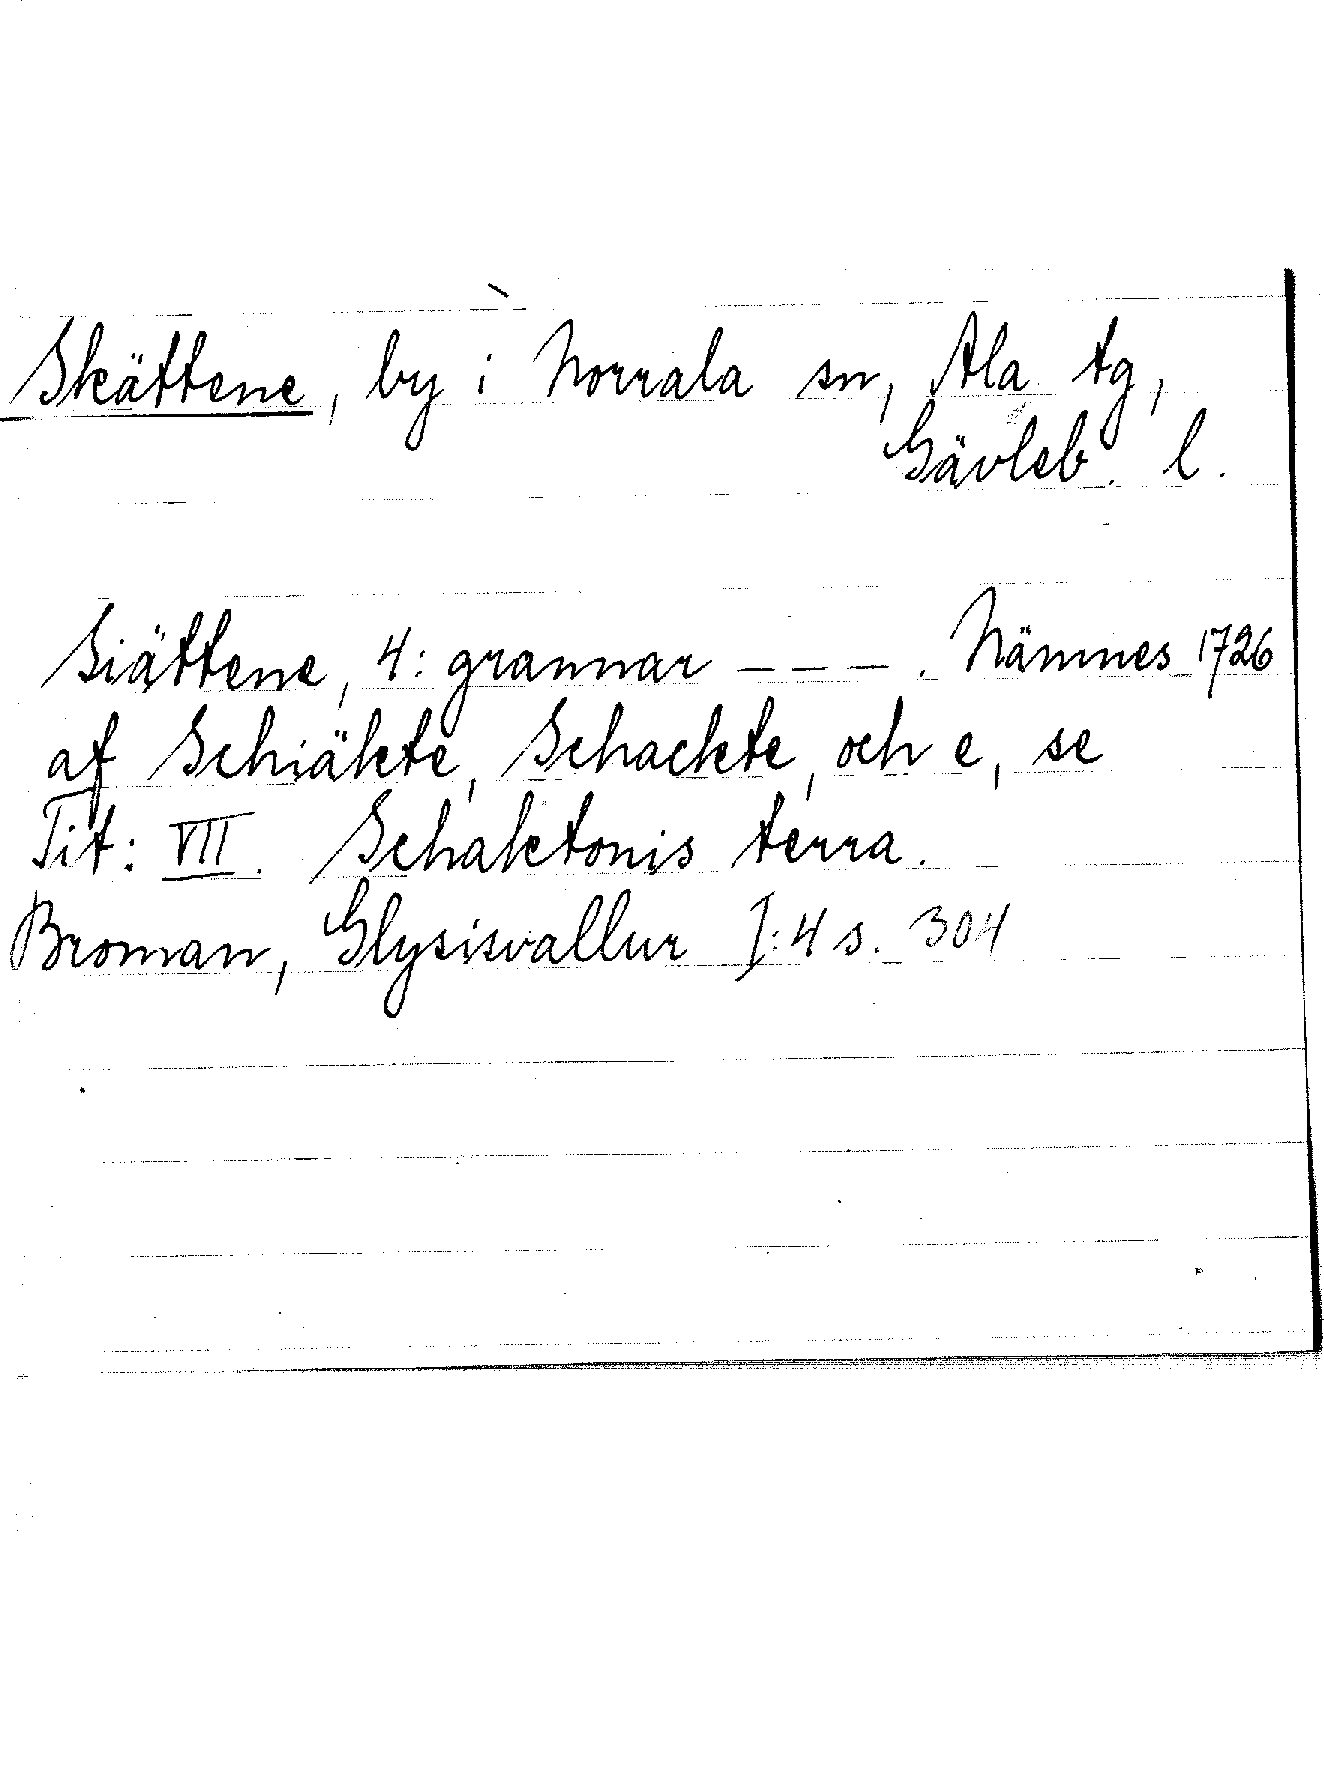 Skättene, by i Norrala sn, Ala tg,
Gävleb. l.
Siättene, 4: grannar - - - . Nämnes 1726
af Schiäkte, Schackte, och e, se
Tit: VII. Schaktonis terra.
Broman, Glysisvallur I:4 s. 304